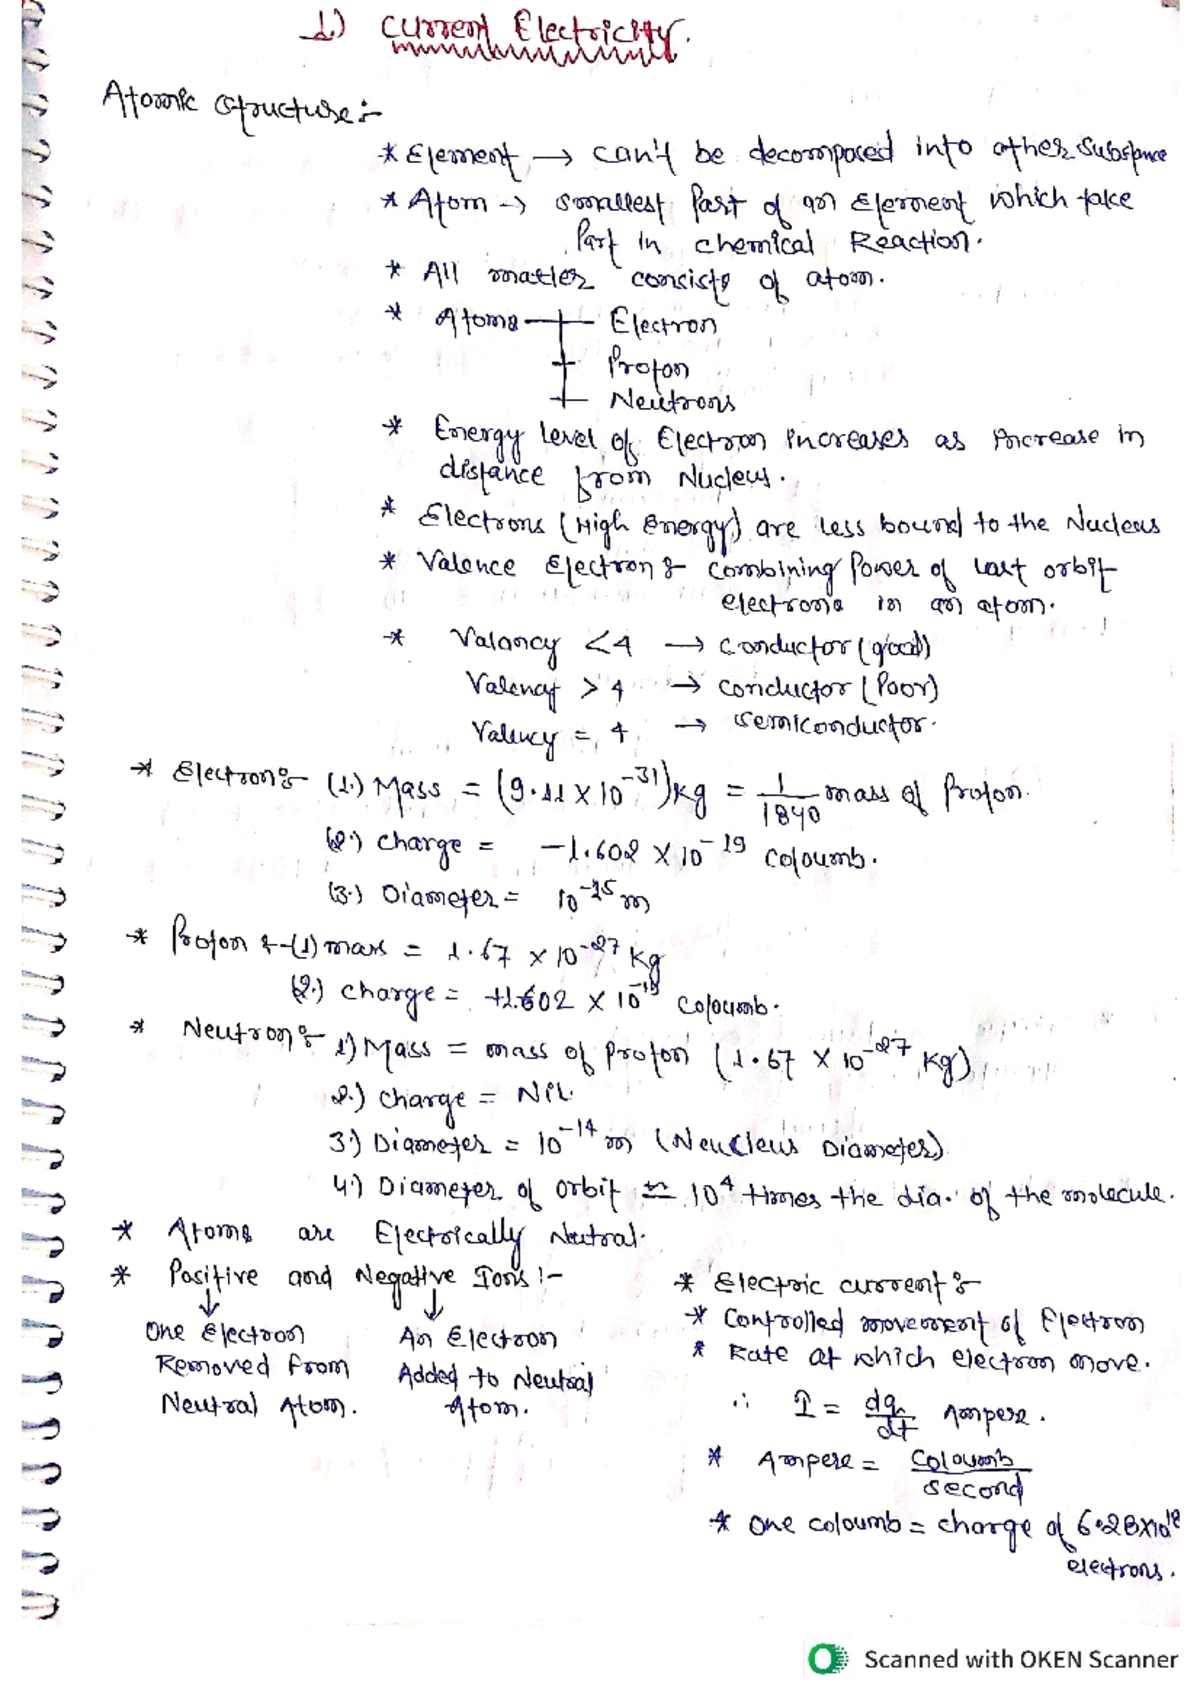 1.) Current Electricity.
Atomic Structure :-
* Element → can't be decomposed into other Substance
* Atom → Smallest Part of an Element which take
Part in chemical Reaction.
* All matter consists of atom.
* Atoms Electron
Proton
Neutrons
* Energy level of Electron increases as increase in
distance from Nucleus.
* Electrons (High Energy) are less bound to the Nucleus
* Valence Electron :- combining Power of last orbit
electrons in an atom.
* Valancy < 4 → conductor (good)
Valency > 4 → conductor (Poor)
Valency = 4 → semiconductor.
* Electron :- (1.) Mass = (9.11 × 10⁻³¹) kg = 1/1840 mass of Proton.
(2.) charge = -1.602 × 10⁻¹⁹ coloumb.
(3.) Diameter = 10⁻¹⁵ m
* Proton :- (1) mass = 1.67 × 10⁻²⁷ kg
(2.) charge = +1.602 × 10⁻¹⁹ coloumb.
* Neutron :- 1) Mass = mass of Proton (1.67 × 10⁻²⁷ kg)
2.) charge = Nil.
3) Diameter = 10⁻¹⁴ m (Neucleus Diameter)
4.) Diameter of orbit ≃ 10⁴ times the dia. of the molecule.
* Atoms are Electrically Neutral.
* Positive and Negative Ions :-
One Electron
Removed from
Neutral Atom.
An Electron
Added to Neutral
Atom.
* Electric current :-
* Controlled movement of Electron
* Rate at which electron move.
∴ I = dq/dt Ampere.
* Ampere = Coloumb/second
* One coloumb = charge of 6.28×10¹⁸
electrons.
Scanned with OKEN Scanner